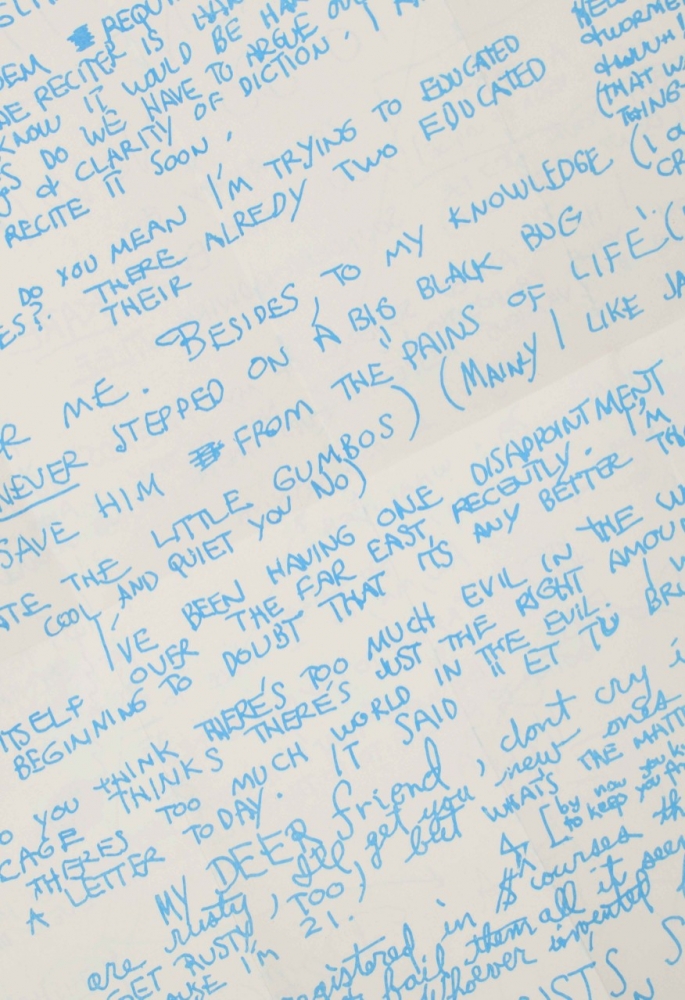 REQU
IS
KNOW IT WOULD BE
DO WE HAVE TO ARGUE
& CLARITY OF DICTION. I
RECITE IT SOON.
HELL
(THAT W
THING
DO YOU MEAN I'M TRYING TO EDUCATED
ES? THERE ALREDY TWO EDUCATED
THEIR
R ME. BESIDES, TO MY KNOWLEDGE (I
NEVER STEPPED ON A BIG BLACK BUG
SAVE HIM FROM THE "PAINS OF LIFE". (
ATE THE LITTLE GUMBOS) (MAINLY I LIKE JA
COOL AND QUIET YOU NO)
I'VE BEEN HAVING ONE DISAPPOINTMENT
OVER THE FAR EAST, RECENTLY. I'M
ITSELF BEGINNING TO DOUBT THAT IT'S ANY BETTER
O YOU THINK THERE'S TOO MUCH EVIL IN THE W
CAGE THINKS THERE'S JUST THE RIGHT AMOU
THERES TOO MUCH WORLD IN THE EVIL. I
A LETTER TODAY. IT SAID "ET TU BRU
MY DEER friend, dont cry i
are rusty, I'll get you new ones
GET RUSTY, TOO) but WHAT'S THE MATT
I'M 21.
[by now
to keep you
registered in courses
fail them all it see
whoever invented